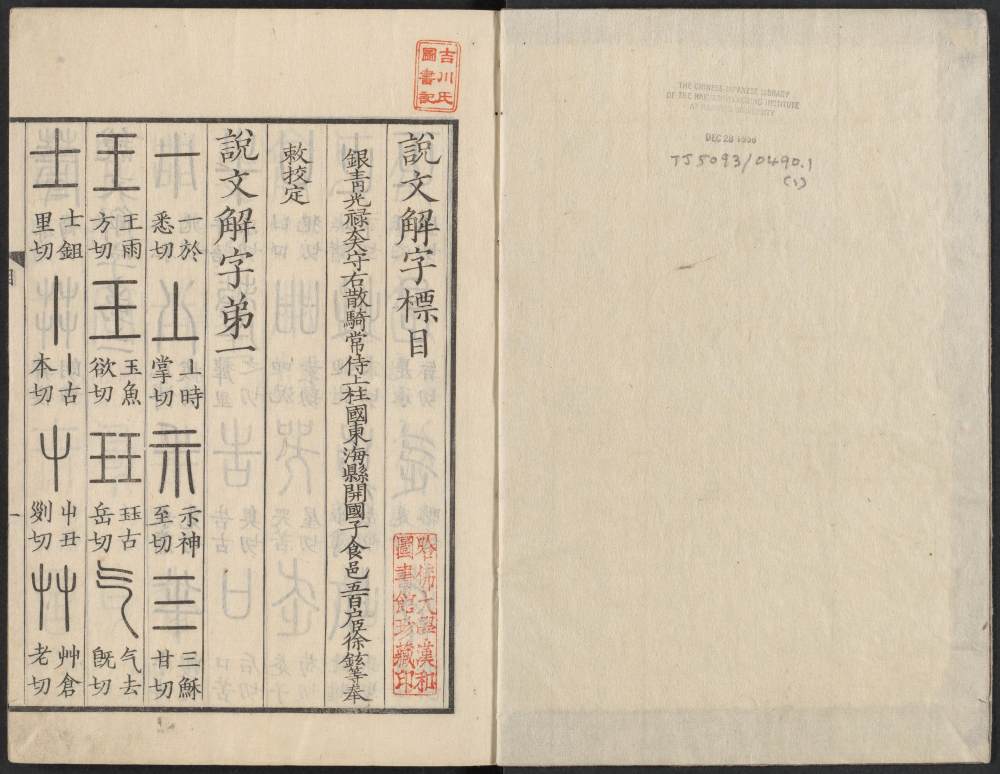 THE CHINESE-JAPANESE LIBRARY
OF THE HARVARD-YENCHING INSTITUTE
AT HARVARD UNIVERSITY
DEC 28 1950
TJ5093/0490.1
(1)
吉川氏
圖書記
說文解字標目
銀青光祿大夫守右散騎常侍上柱國東海縣開國子食邑五百戶臣徐鉉等奉
敕挍定
哈佛大學漢和
圖書館珍藏印
說文解字弟一
一 一於悉切 丄 丄時掌切 示 示神至切 三 三穌甘切
王 王雨方切 王 玉魚欲切 玨 玨古岳切 气 气去旣切
士 士鉏里切 丨 丨古本切 屮 屮丑剟切 艸 艸倉老切
目
一